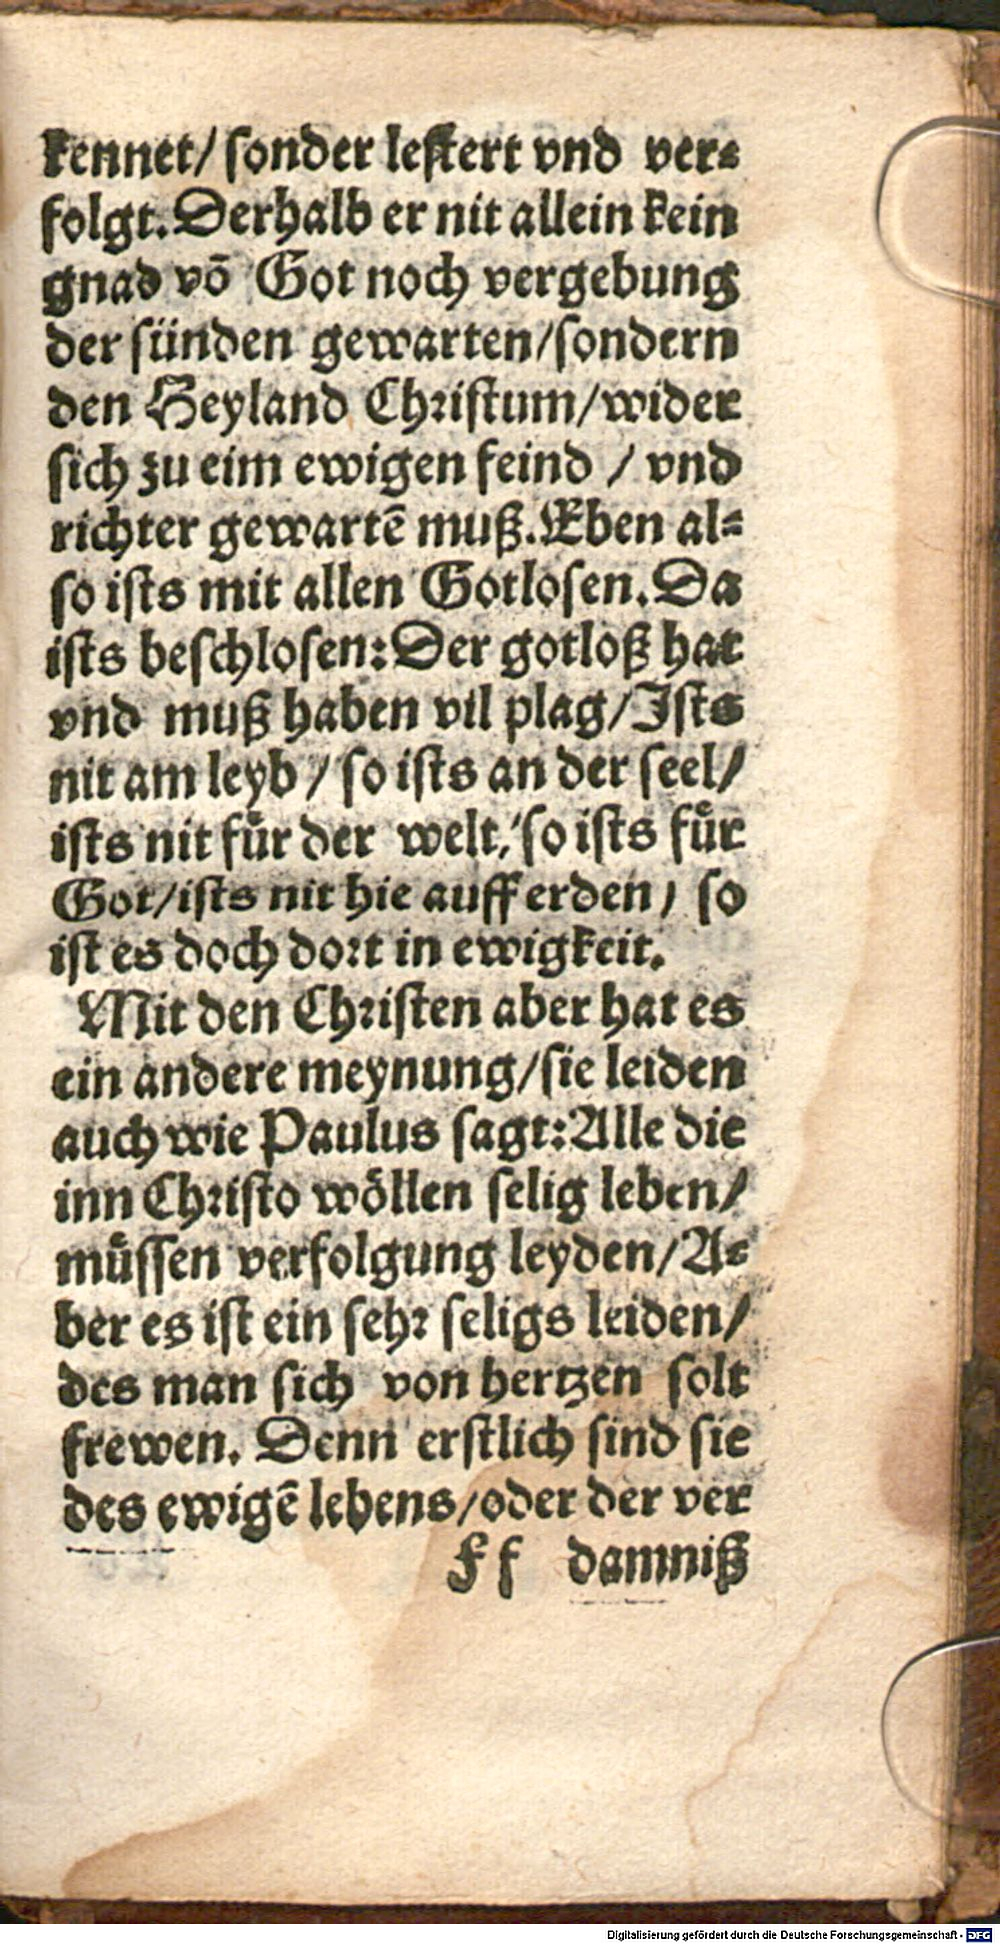 kennet/ sonder lestert vnd ver⸗
folgt. Derhalb er nit allein kein
gnad võ Got noch vergebung
der sünden gewarten/sondern
den Heyland Christum/wider
sich zu eim ewigen feind / vnd
richter gewartẽ muß. Eben al⸗
so ists mit allen Gotlosen. Da
ists beschlosen: Der gotloß hat
vnd muß haben vil plag/Ists
nit am leyb / so ists an der seel/
ists nit fuͤr der welt/ so ists fuͤr
Got/ists nit hie auff erden/ so
ist es doch dort in ewigkeit.
Mit den Christen aber hat es
ein andere meynung/sie leiden
auch wie Paulus sagt: Alle die
inn Christo woͤllen selig leben/
muͤssen verfolgung leyden/A⸗
ber es ist ein sehr seligs leiden/
des man sich von hertzen solt
frewen. Denn erstlich sind sie
des ewigẽ lebens/oder der ver
Ff damniß
Digitalisierung gefördert durch die Deutsche Forschungsgemeinschaft - DFG